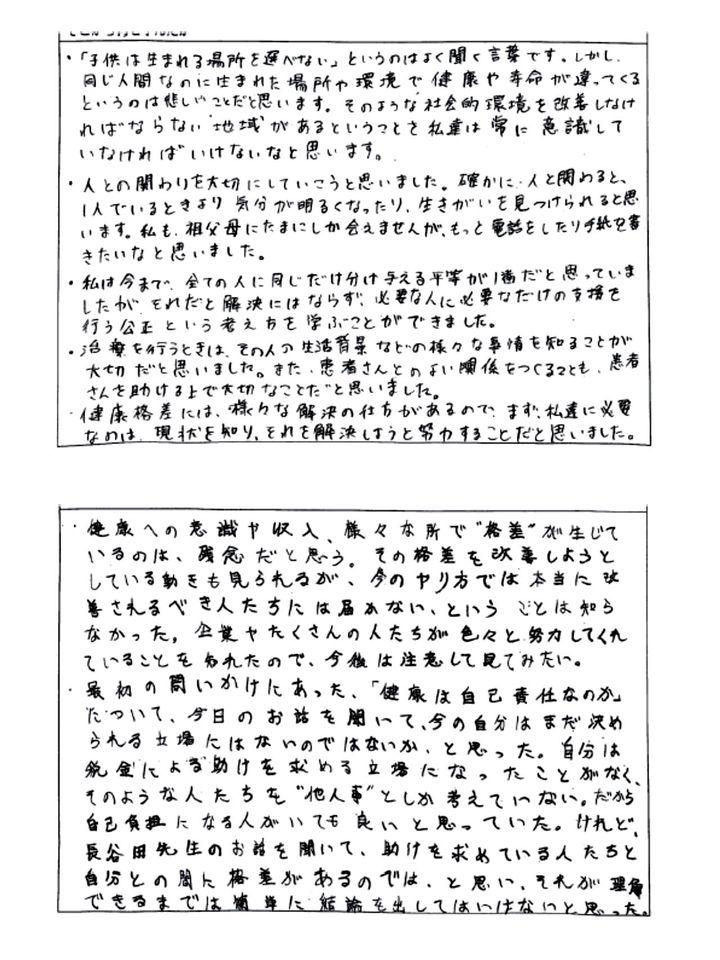 ・「子供は生まれる場所を選べない」というのはよく聞く言葉です。しかし、
同じ人間なのに生まれた場所や環境で健康や寿命が違ってくる
というのは悲しいことだと思います。そのような社会的環境を改善しなけ
ればならない地域があるということを私達は常に意識して
いなければいけないなと思います。
・人との関わりを大切にしていこうと思いました。確かに、人と関わると、
1人でいるときより気分が明るくなったり、生きがいを見つけられると思
います。私も、祖父母にたまにしか会えませんが、もっと電話をしたり手紙を書
きたいなと思いました。
・私は今まで、全ての人に同じだけ分け与える平等が1番だと思っていま
したが、それだと解決にはならず、必要な人に必要なだけの支援を
行う公正という考え方を学ぶことができました。
・治療を行うときは、その人の生活背景などの様々な事情を知ることが
大切だと思いました。また、患者さんとのよい関係をつくることも、患者
さんを助ける上で大切なことだと思いました。
・健康格差には、様々な解決の仕方があるので、まず、私達に必要
なのは、現状を知り、それを解決しようと努力することだと思いました。
・健康への意識や収入、様々な所で"格差"が生じて
いるのは、残念だと思う。その格差を改善しようと
している動きも見られるが、今のヤり方では本当に改
善されるべき人たちには届かない、ということは知ら
なかった。企業やたくさんの人たちが色々と努力してくれ
ていることを知れたので、今後は注意して見てみたい。
・最初の問いかけにあった、「健康は自己責任なのか」
について、今日のお話を聞いて、今の自分はまだ決め
られる立場にはないのではないか、と思った。自分は
税金による助けを求める立場になったことがなく、
そのような人たちを"他人事"としか考えていない。だから
自己負担になる人がいても良いと思っていた。けれど、
長谷田先生のお話を聞いて、助けを求めている人たちと
自分との間に格差があるのでは、と思い、それが理解
できるまでは簡単に結論を出してはいけないと思った。